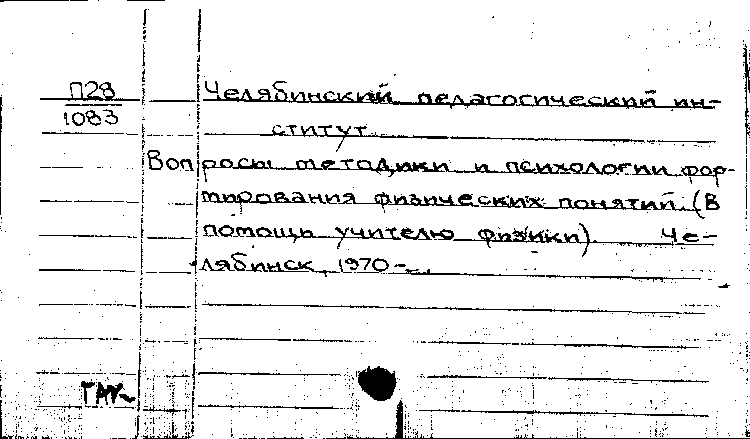 П28
1083
Челябинский педагогический ин-
ститут
Вопросы методики и психологии фор-
мирования физических понятий. (В
помощь учителю физики). Че-
лябинск, 1970-